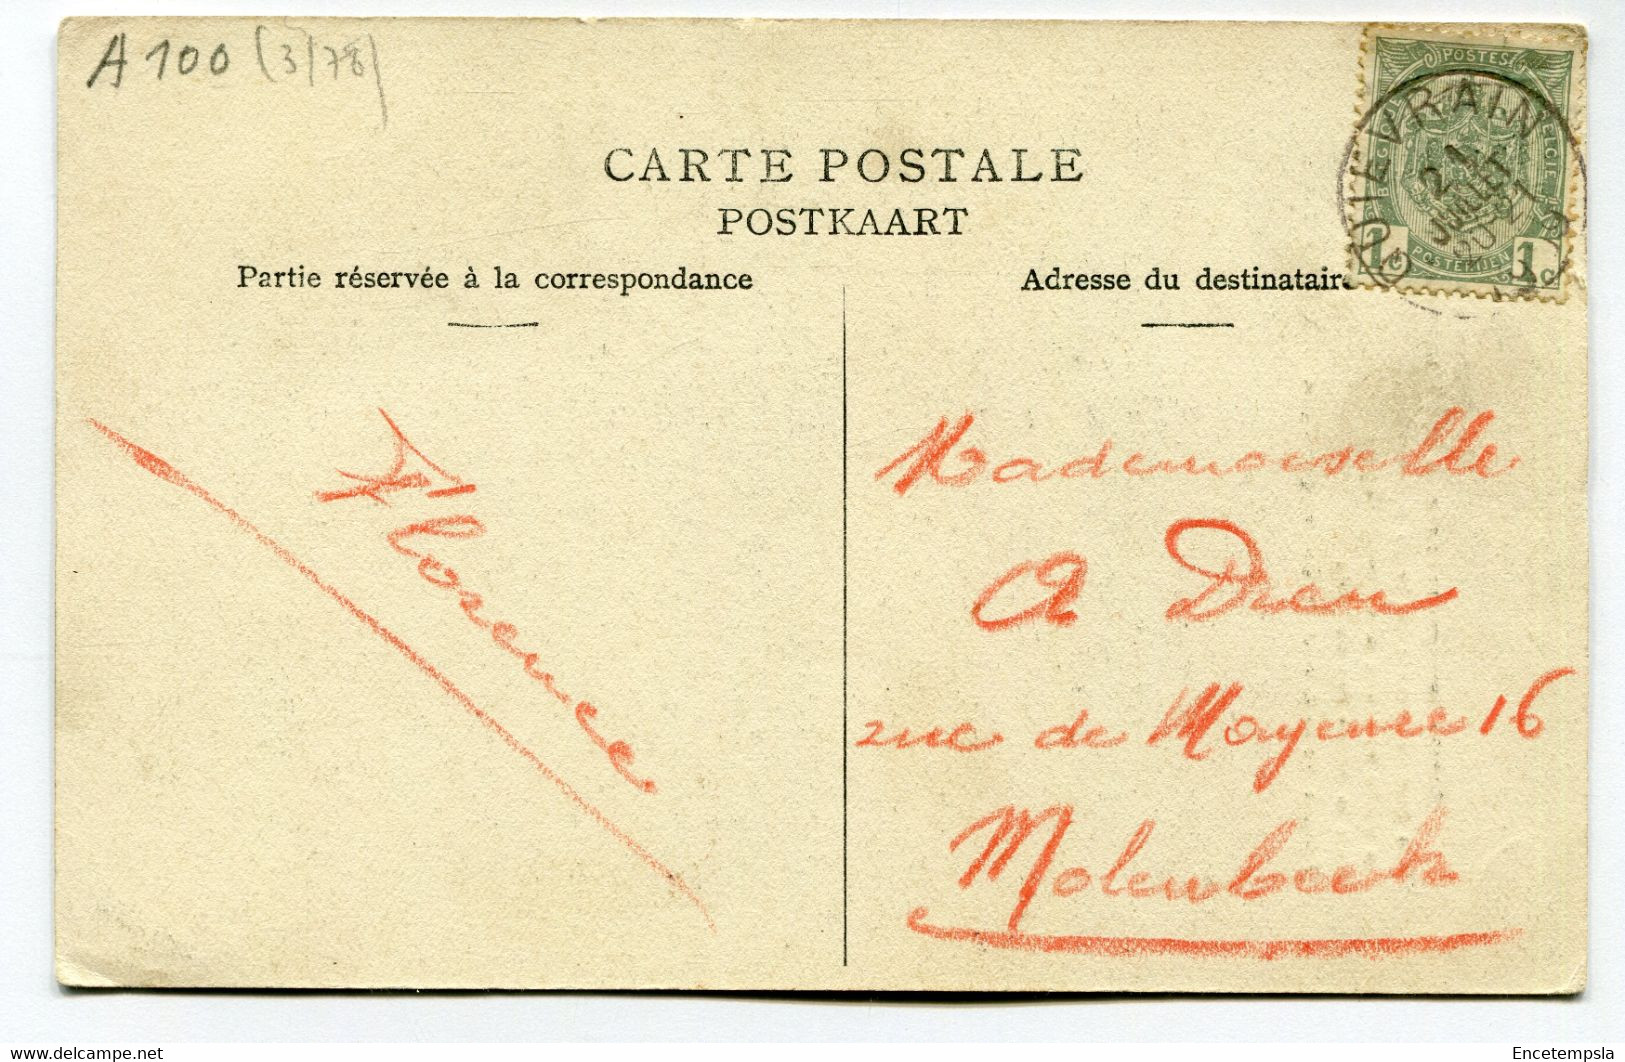 A 100 (3/78)
CARTE POSTALE
POSTKAART
Partie réservée à la correspondance
Adresse du destinataire
POSTES
BELGIQUE BELGIE
1c POSTERIJEN 1c
QUIEVRAIN
21
JUILLET
20-21
Florence
Mademoiselle
A Dieu
rue de Mayence 16
Molenbeek
www.delcampe.net
Encetempsla